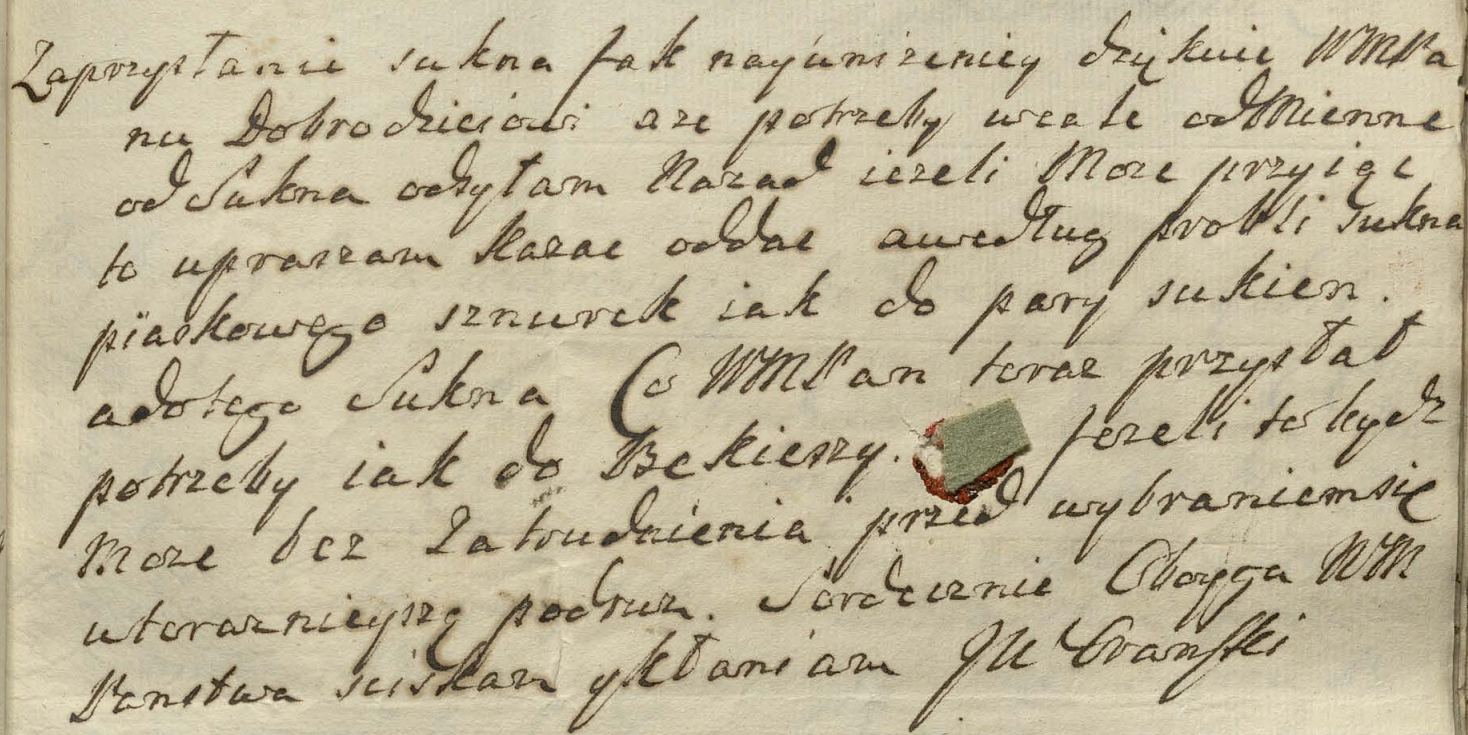 Zaprzysłanie sukna Jak nayuniżeniey dziękuie WMPa
nu Dobrodzieiowi aze potrzeby wcale odMienne
od Sukna odsyłam Nazad iezeli Moze przyiąc
to upraszam Kazac oddac awedług probki sukna
piaskowego sznurek iak do pary sukien.
adotego Sukna Co WMPan teraz przysłał
potrzeby iak do Bekieszy. Jezeli to bydz
Moze bez Zatrudnienia przed wybraniemsię
wteraznieyszą podruz. Serdecznie Oboyga WM
Panstwa sciskam ykłaniam